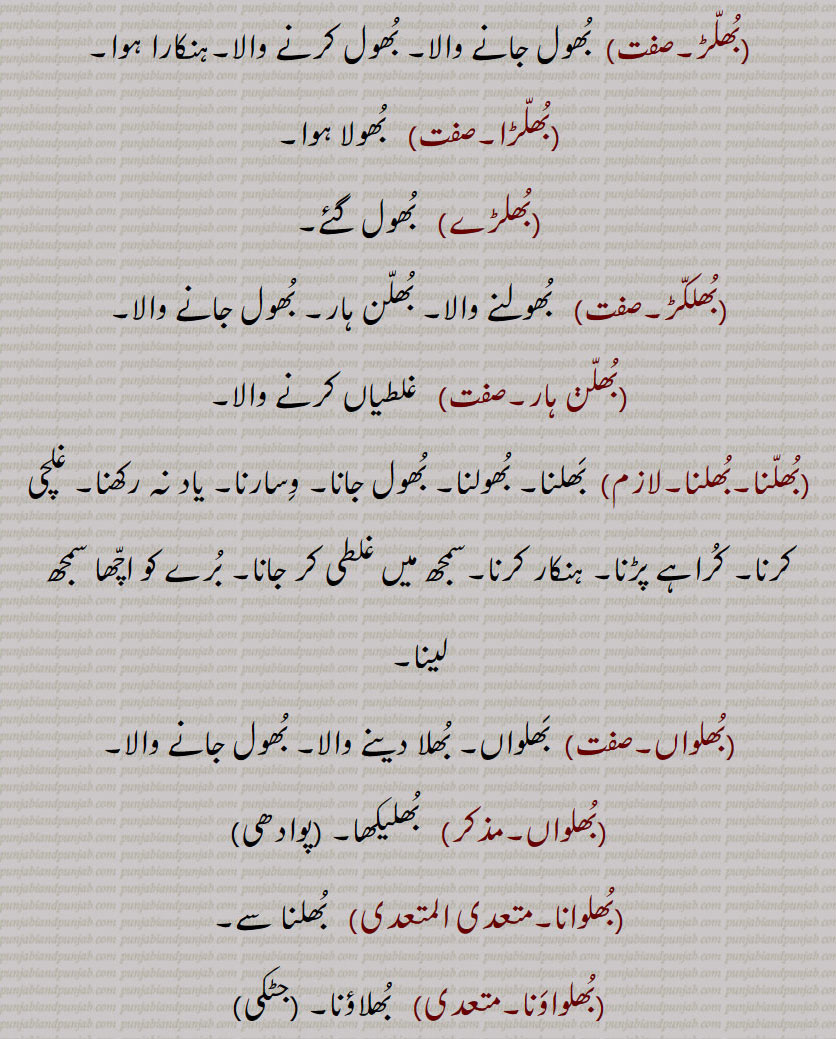 (بُھلّڑ۔صفت) بُھول جانے والا۔ بُھول کرنے والا۔ہنکارا ہوا۔
(بُھلّڑا۔صفت) بُھولا ہوا۔
(بُھلڑے) بُھول گئے۔
(بُھلکّڑ۔صفت) بُھولنے والا۔ بُھلّن ہار۔ بُھول جانے والا۔
(بُھلّݨ ہار۔صفت) غلطیاں کرنے والا۔
(بُھلّنا۔بُھلنا۔لازم) بَھلنا۔ بُھولنا۔ بُھول جانا۔ وِسارنا۔ یاد نہ رکھنا۔ غلچی
کرنا۔ کُراہے پڑنا۔ ہنکار کرنا۔سمجھ میں غلطی کر جانا۔ بُرے کو اچّھا سمجھ
لینا۔
(بُھلواں۔صفت) بَھلواں۔ بُھلا دینے والا۔ بُھول جانے والا۔
(بُھلواں۔مذکر) بُھلیکھا۔ (پوادھی)
(بُھلوانا۔متعدی المتعدی) بُھلنا سے۔
(بُھلواوَنا۔متعدی) بُھلاؤنا۔ (جٹکی)